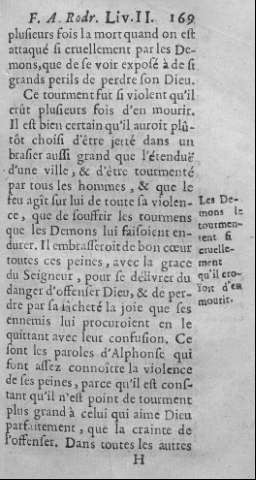 F. A. Rodr. Liv. II. 169
plusieurs fois la mort quand on est
attaqué si cruellement par les De-
mons, que de se voir exposé à de si
grands perils de perdre son Dieu.
Ce tourment fut si violent qu'il
crût plusieurs fois d'en mourir.
Il est bien certain qu'il auroit plû-
tôt choisi d'être jetté dans un
brasier aussi grand que l'étenduë
d'une ville, & d'être tourmenté
par tous les hommes, & que le
feu agît sur lui de toute sa violen-
ce, que de souffrir les tourmens
que les Demons lui faisoient en-
durer. Il embrasseroit de bon cœur
toutes ces peines, avec la grace
du Seigneur, pour se délivrer du
danger d'offenser Dieu, & de per-
dre par sa lâcheté la joie que ses
ennemis lui procuroient en le
quittant avec leur confusion. Ce
sont les paroles d'Alphonse qui
font assez connoître la violence
de ses peines, parce qu'il est cons-
tant qu'il n'est point de tourment
plus grand à celui qui aime Dieu
parfaitement, que la crainte de
l'offenser. Dans toutes les autres
H
Les De-
mons le
tourmen-
tent si
cruelle-
ment
qu'il cro-
ioit d'en
mourir.